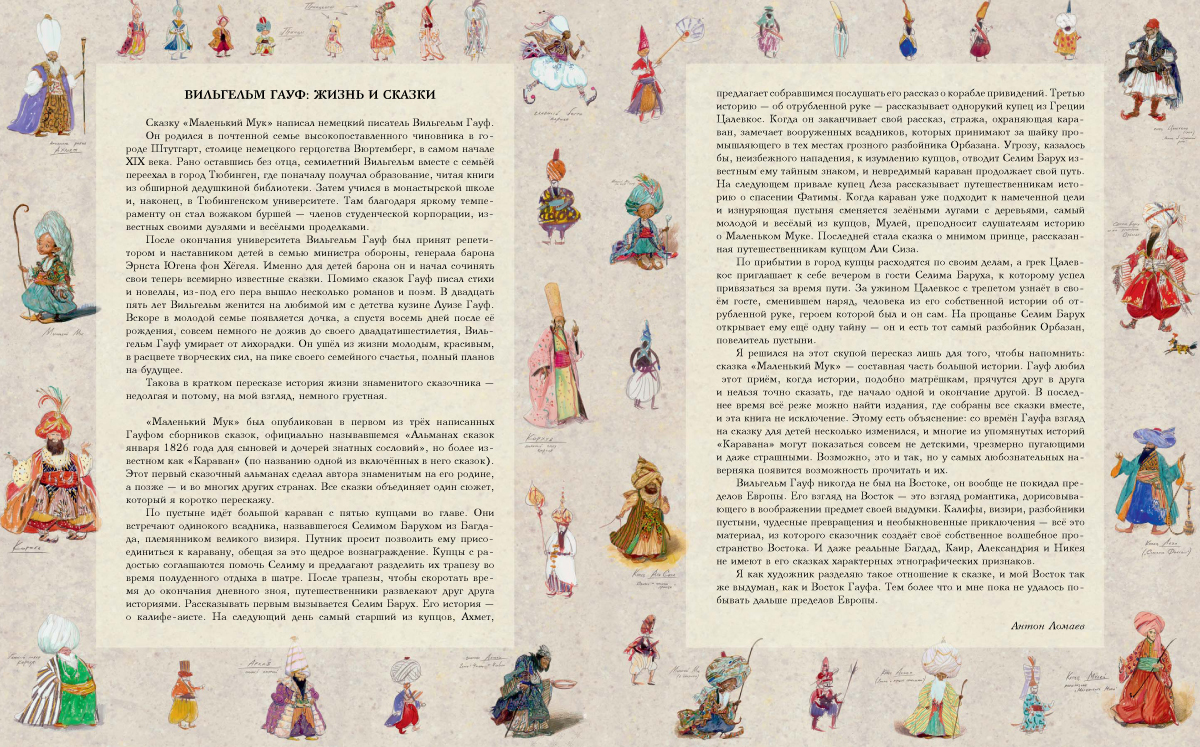 ВИЛЬГЕЛЬМ ГАУФ: ЖИЗНЬ И СКАЗКИ
Сказку «Маленький Мук» написал немецкий писатель Вильгельм Гауф.
Он родился в почтенной семье высокопоставленного чиновника в го-
роде Штутгарт, столице немецкого герцогства Вюртемберг, в самом начале
XIX века. Рано оставшись без отца, семилетний Вильгельм вместе с семьёй
переехал в город Тюбинген, где поначалу получал образование, читая книги
из обширной дедушкиной библиотеки. Затем учился в монастырской школе
и, наконец, в Тюбингенском университете. Там благодаря яркому темпе-
раменту он стал вожаком буршей — членов студенческой корпорации, из-
вестных своими дуэлями и весёлыми проделками.
После окончания университета Вильгельм Гауф был принят репети-
тором и наставником детей в семью министра обороны, генерала барона
Эрнста Югена фон Хёгеля. Именно для детей барона он и начал сочинять
свои теперь всемирно известные сказки. Помимо сказок Гауф писал стихи
и новеллы, из-под его пера вышло несколько романов и поэм. В двадцать
пять лет Вильгельм женится на любимой им с детства кузине Луизе Гауф.
Вскоре в молодой семье появляется дочка, а спустя восемь дней после её
рождения, совсем немного не дожив до своего двадцатишестилетия, Виль-
гельм Гауф умирает от лихорадки. Он ушёл из жизни молодым, красивым,
в расцвете творческих сил, на пике своего семейного счастья, полный планов
на будущее.
Такова в кратком пересказе история жизни знаменитого сказочника —
недолгая и потому, на мой взгляд, немного грустная.
«Маленький Мук» был опубликован в первом из трёх написанных
Гауфом сборников сказок, официально называвшемся «Альманах сказок
января 1826 года для сыновей и дочерей знатных сословий», но более из-
вестном как «Караван» (по названию одной из включённых в него сказок).
Этот первый сказочный альманах сделал автора знаменитым на его родине,
а позже — и во многих других странах. Все сказки объединяет один сюжет,
который я коротко перескажу.
По пустыне идёт большой караван с пятью купцами во главе. Они
встречают одинокого всадника, назвавшегося Селимом Барухом из Багда-
да, племянником великого визиря. Путник просит позволить ему присо-
единиться к каравану, обещая за это щедрое вознаграждение. Купцы с ра-
достью соглашаются помочь Селиму и предлагают разделить их трапезу во
время полуденного отдыха в шатре. После трапезы, чтобы скоротать вре-
мя до окончания дневного зноя, путешественники развлекают друг друга
историями. Рассказывать первым вызывается Селим Барух. Его история —
о калифе-аисте. На следующий день самый старший из купцов, Ахмет,
предлагает собравшимся послушать его рассказ о корабле привидений. Третью
историю — об отрубленной руке — рассказывает однорукий купец из Греции
Цалевкос. Когда он заканчивает свой рассказ, стража, охраняющая кара-
ван, замечает вооруженных всадников, которых принимают за шайку про-
мышляющего в тех местах грозного разбойника Орбазана. Угрозу, казалось
бы, неизбежного нападения, к изумлению купцов, отводит Селим Барух из-
вестным ему тайным знаком, и невредимый караван продолжает свой путь.
На следующем привале купец Леза рассказывает путешественникам исто-
рию о спасении Фатимы. Когда караван уже подходит к намеченной цели
и изнуряющая пустыня сменяется зелёными лугами с деревьями, самый
молодой и весёлый из купцов, Мулей, преподносит слушателям историю
о Маленьком Муке. Последней стала сказка о мнимом принце, рассказан-
ная путешественникам купцом Али Сиза.
По прибытии в город купцы расходятся по своим делам, а грек Цалев-
кос приглашает к себе вечером в гости Селима Баруха, к которому успел
привязаться за время пути. За ужином Цалевкос с трепетом узнаёт в сво-
ём госте, сменившем наряд, человека из его собственной истории об от-
рубленной руке, героем которой был и он сам. На прощанье Селим Барух
открывает ему ещё одну тайну — он и есть тот самый разбойник Орбазан,
повелитель пустыни.
Я решился на этот скупой пересказ лишь для того, чтобы напомнить:
сказка «Маленький Мук» — составная часть большой истории. Гауф любил
этот приём, когда истории, подобно матрёшкам, прячутся друг в друга
и нельзя точно сказать, где начало одной и окончание другой. В послед-
нее время всё реже можно найти издания, где собраны все сказки вместе,
и эта книга не исключение. Этому есть объяснение: со времён Гауфа взгляд
на сказку для детей несколько изменился, и многие из упомянутых историй
«Каравана» могут показаться совсем не детскими, чрезмерно пугающими
и даже страшными. Возможно, это и так, но у самых любознательных на-
верняка появится возможность прочитать и их.
Вильгельм Гауф никогда не был на Востоке, он вообще не покидал пре-
делов Европы. Его взгляд на Восток — это взгляд романтика, дорисовыва-
ющего в воображении предмет своей выдумки. Калифы, визири, разбойники
пустыни, чудесные превращения и необыкновенные приключения — всё это
материал, из которого сказочник создаёт своё собственное волшебное про-
странство Востока. И даже реальные Багдад, Каир, Александрия и Никея
не имеют в его сказках характерных этнографических признаков.
Я как художник разделяю такое отношение к сказке, и мой Восток так
же выдуман, как и Восток Гауфа. Тем более что и мне пока не удалось по-
бывать дальше пределов Европы.
Антон Ломаев